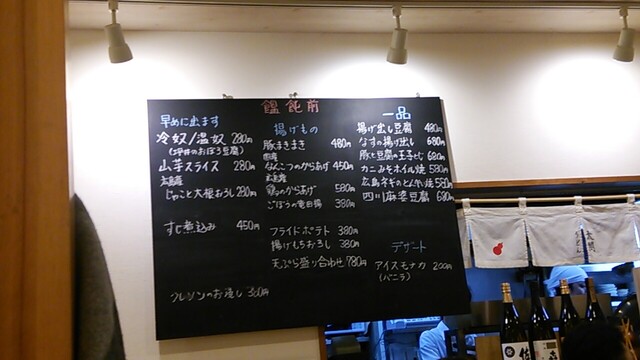 饂飩前
早めに出ます
冷奴/温奴 280円
山芋スライス 280円
広島産
じゃこと大根おろし 280円
すじ煮込み 450円
クレソンのお浸し 380円
揚げもの
豚まきまき 480円
なんこつのからあげ 450円
広島産
鶏のからあげ 580円
ごぼうの竜田揚 380円
フライドポテト 380円
揚げもちおろし 380円
天ぷら盛り合わせ 780円
一品
揚げ出し豆腐 480円
なすの揚げ出し 680円
豚と豆腐の玉子とじ 680円
カニみそホイル焼 580円
広島ネギのとん平焼 580円
四川麻婆豆腐 680円
デザート
アイスモナカ 200円
(バニラ)